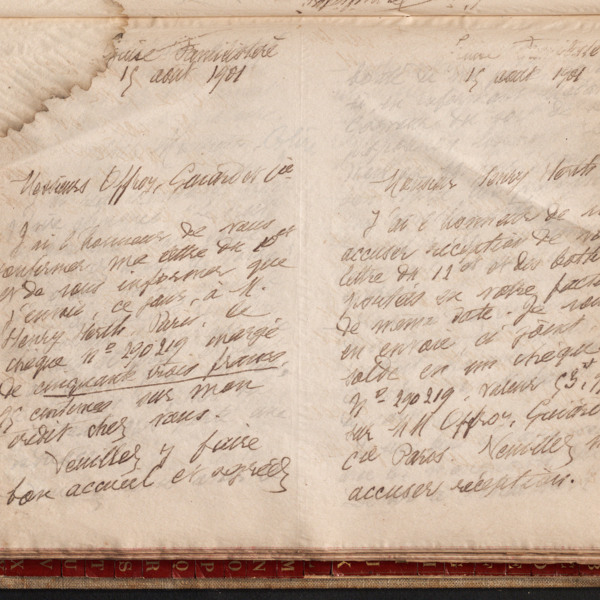 Guise Familistère
15 août 1901
Messieurs Offroy, Guiard et Cie
J'ai l'honneur de vous
confirmer ma lettre du
et de vous informer que
j'envoie, ce jour, à M.
Henry Paris, le
chèque No 290219 chargé
de cinquante trois francs
centimes sur mon
crédit chez vous.
Veuillez y faire
bon accueil et agréez
Guise Familistère
15 août 1901
Monsieur Henry
J'ai l'honneur de
accuser réception de
lettre du 12 ct et des
portées en votre
de même date. Je
en envoie ci joint
solde en un chèque
No 290219. Valeur 53
sur MM Offroy, Guiard
Cie Paris. Veuillez
accuser réception.
V
U
T
S
R
Q
P
O
N
M